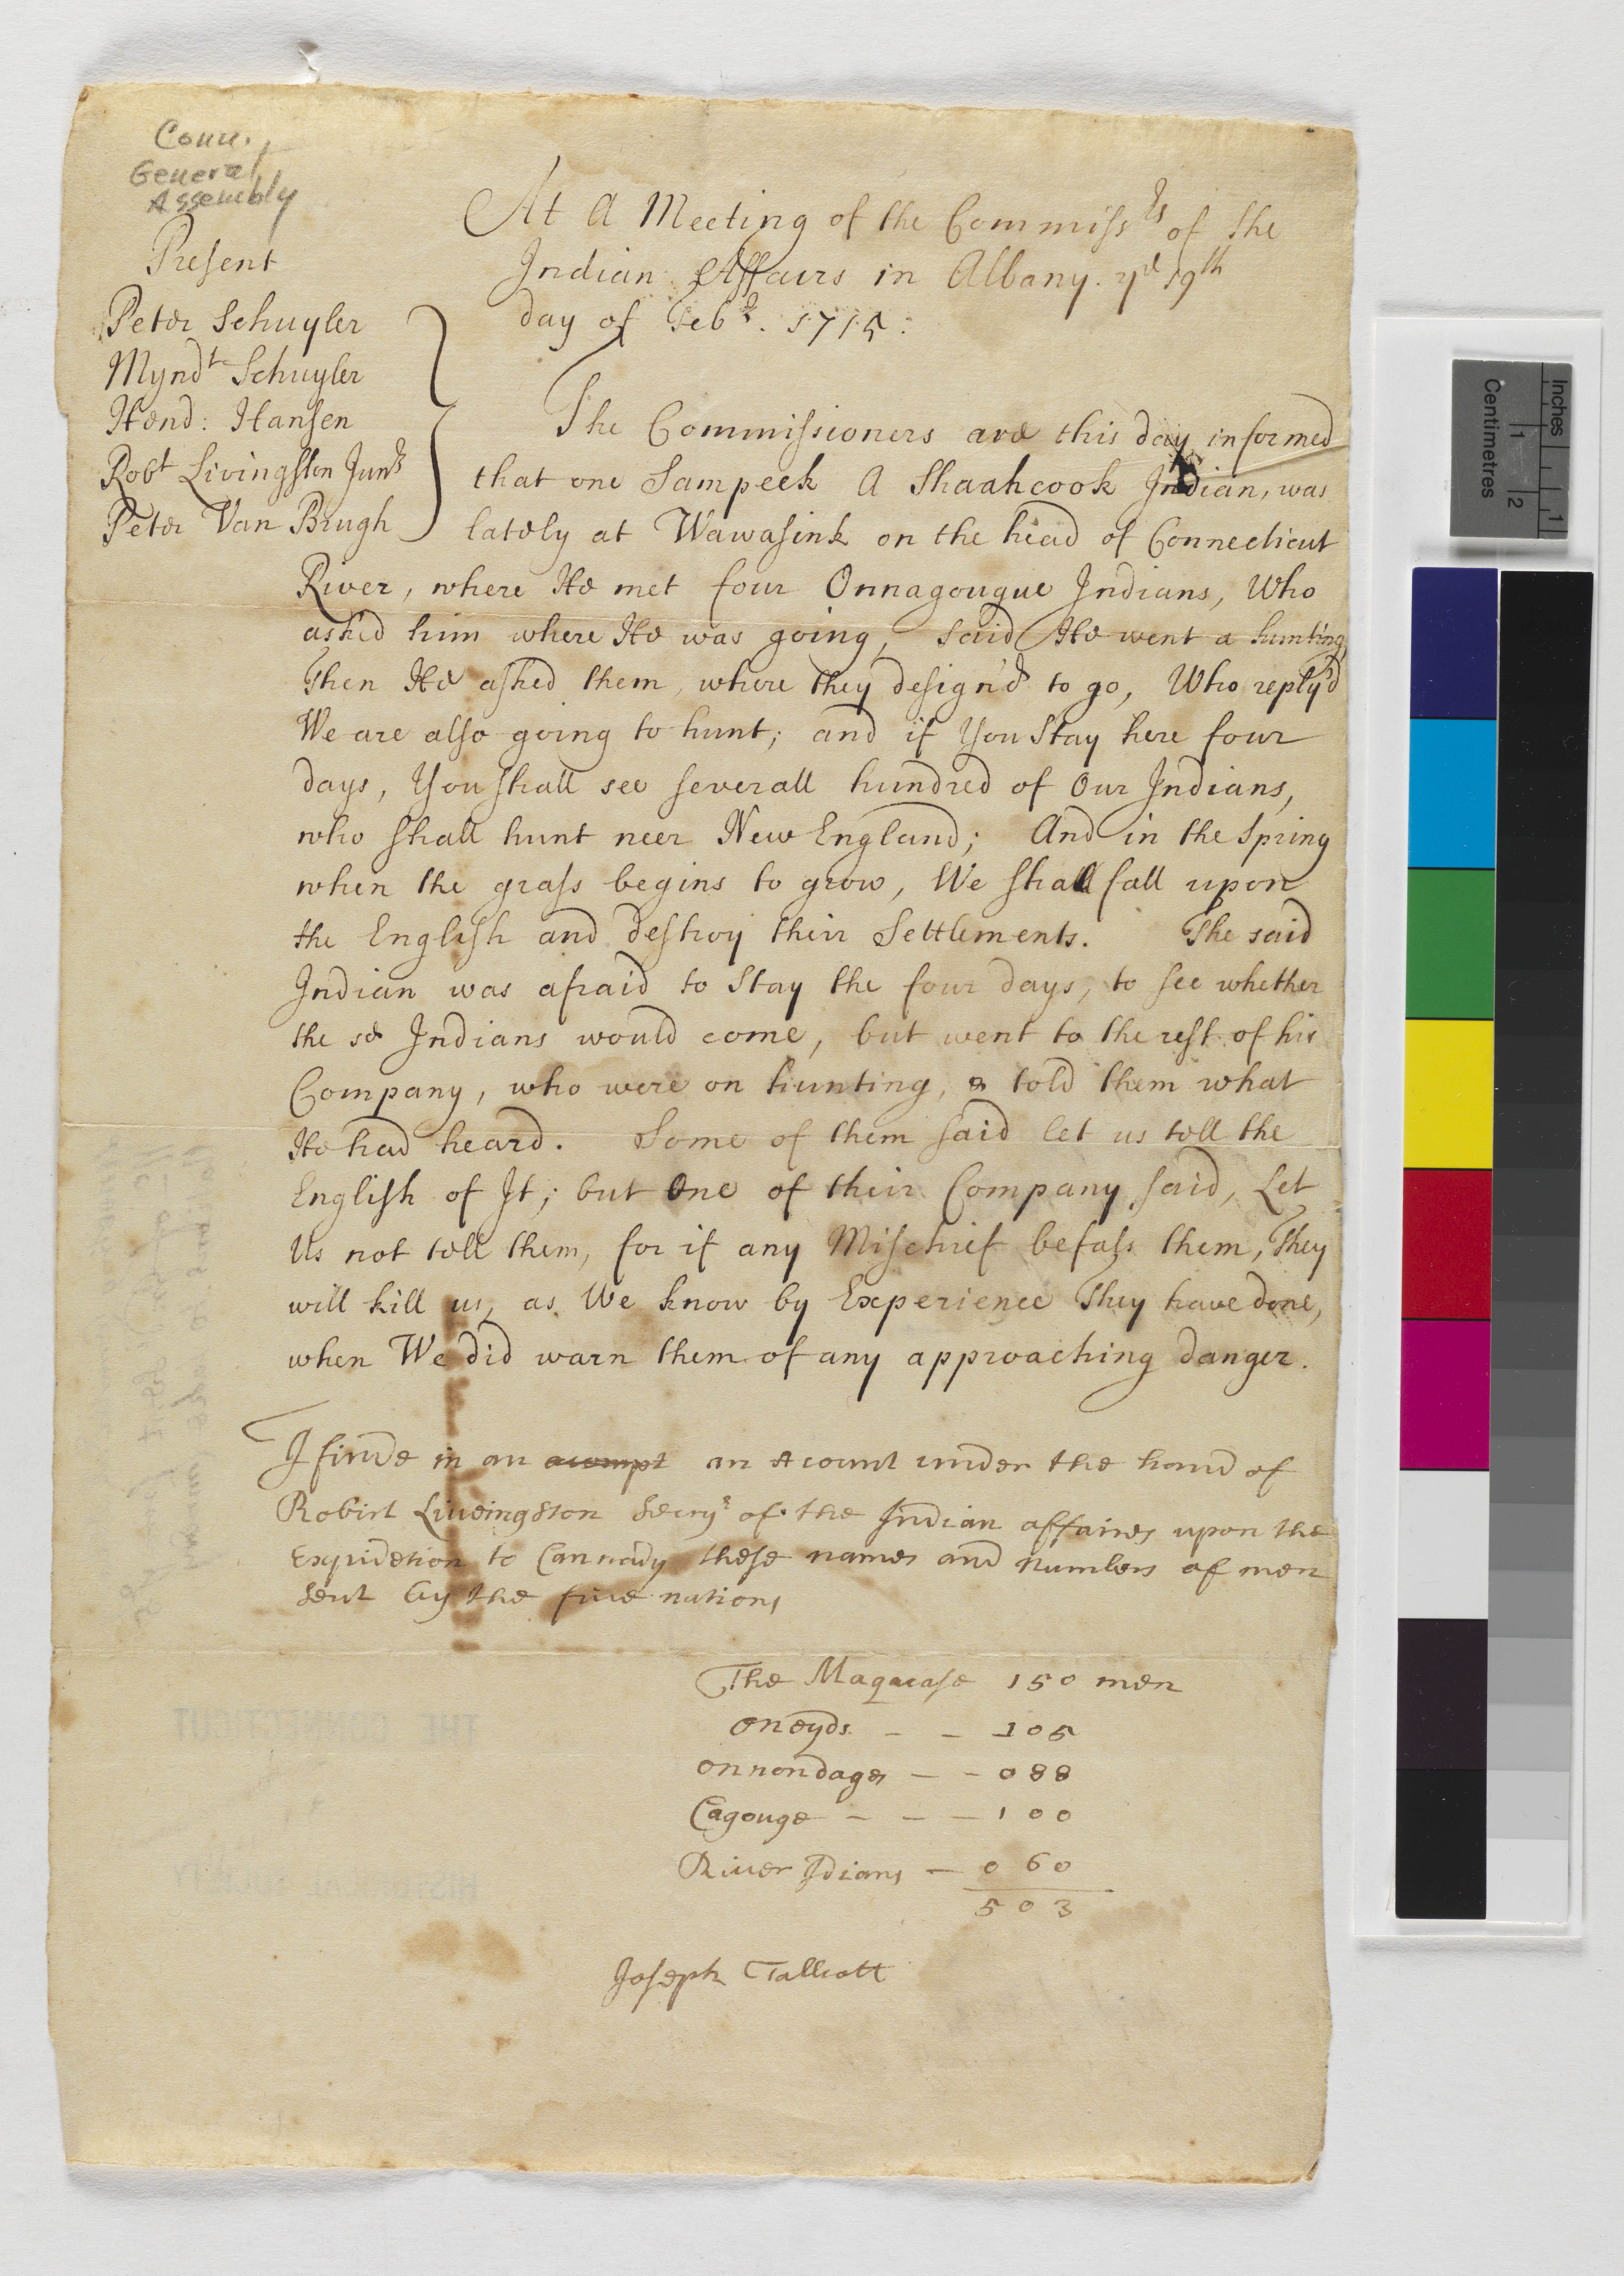 Conn.,
General
Assembly
Present
Peter Schuyler
Myndt Schuyler
Hend: Hansen
Robt Livingston Junr
Peter Van Brugh
At A Meeting of the Commissrs of the
Indian Affairs in Albany. ye 19th
day of Febr. 1715:
The Commissioners are this day informed
that one Sampeek A Shaahcook Indian, was
lately at Wawasink on the head of Connecticut
River, where He met four Onnagougue Indians, Who
asked him where He was going, said He went a hunting,
Then He asked them, where they design'd to go, Who reply'd
We are also going to hunt; and if You Stay here four
days, You shall see severall hundred of Our Indians,
who shall hunt neer New England; And in the Spring
when the grass begins to grow, We shall fall upon
the English and destroy their Settlements. The said
Indian was afraid to Stay the four days, to see whether
the sd Indians would come, but went to the rest of his
Company, who were on hunting, & told them what
He had heard. Some of them said let us tell the
English of It; but One of their Company said, Let
Us not tell them, for if any Mischief befals them, They
will kill us, as We know by Experience They have done,
when We did warn them of any approaching danger.
I finde in an acompt an Acount under the hand of
Robirt Liveingston Secry of the Indian affaires upon the
Expidetion to Cannady these names and numbers of men
sent by the five nations
The Maquase 150 men
oneyds - - 105
onnondages - - 088
Cagouge - - - 100
River Idians - 060
503
Joseph Tallcott
Inches
Centimetres
1
2
1
THE CONNECTICUT
HISTORICAL SOCIETY